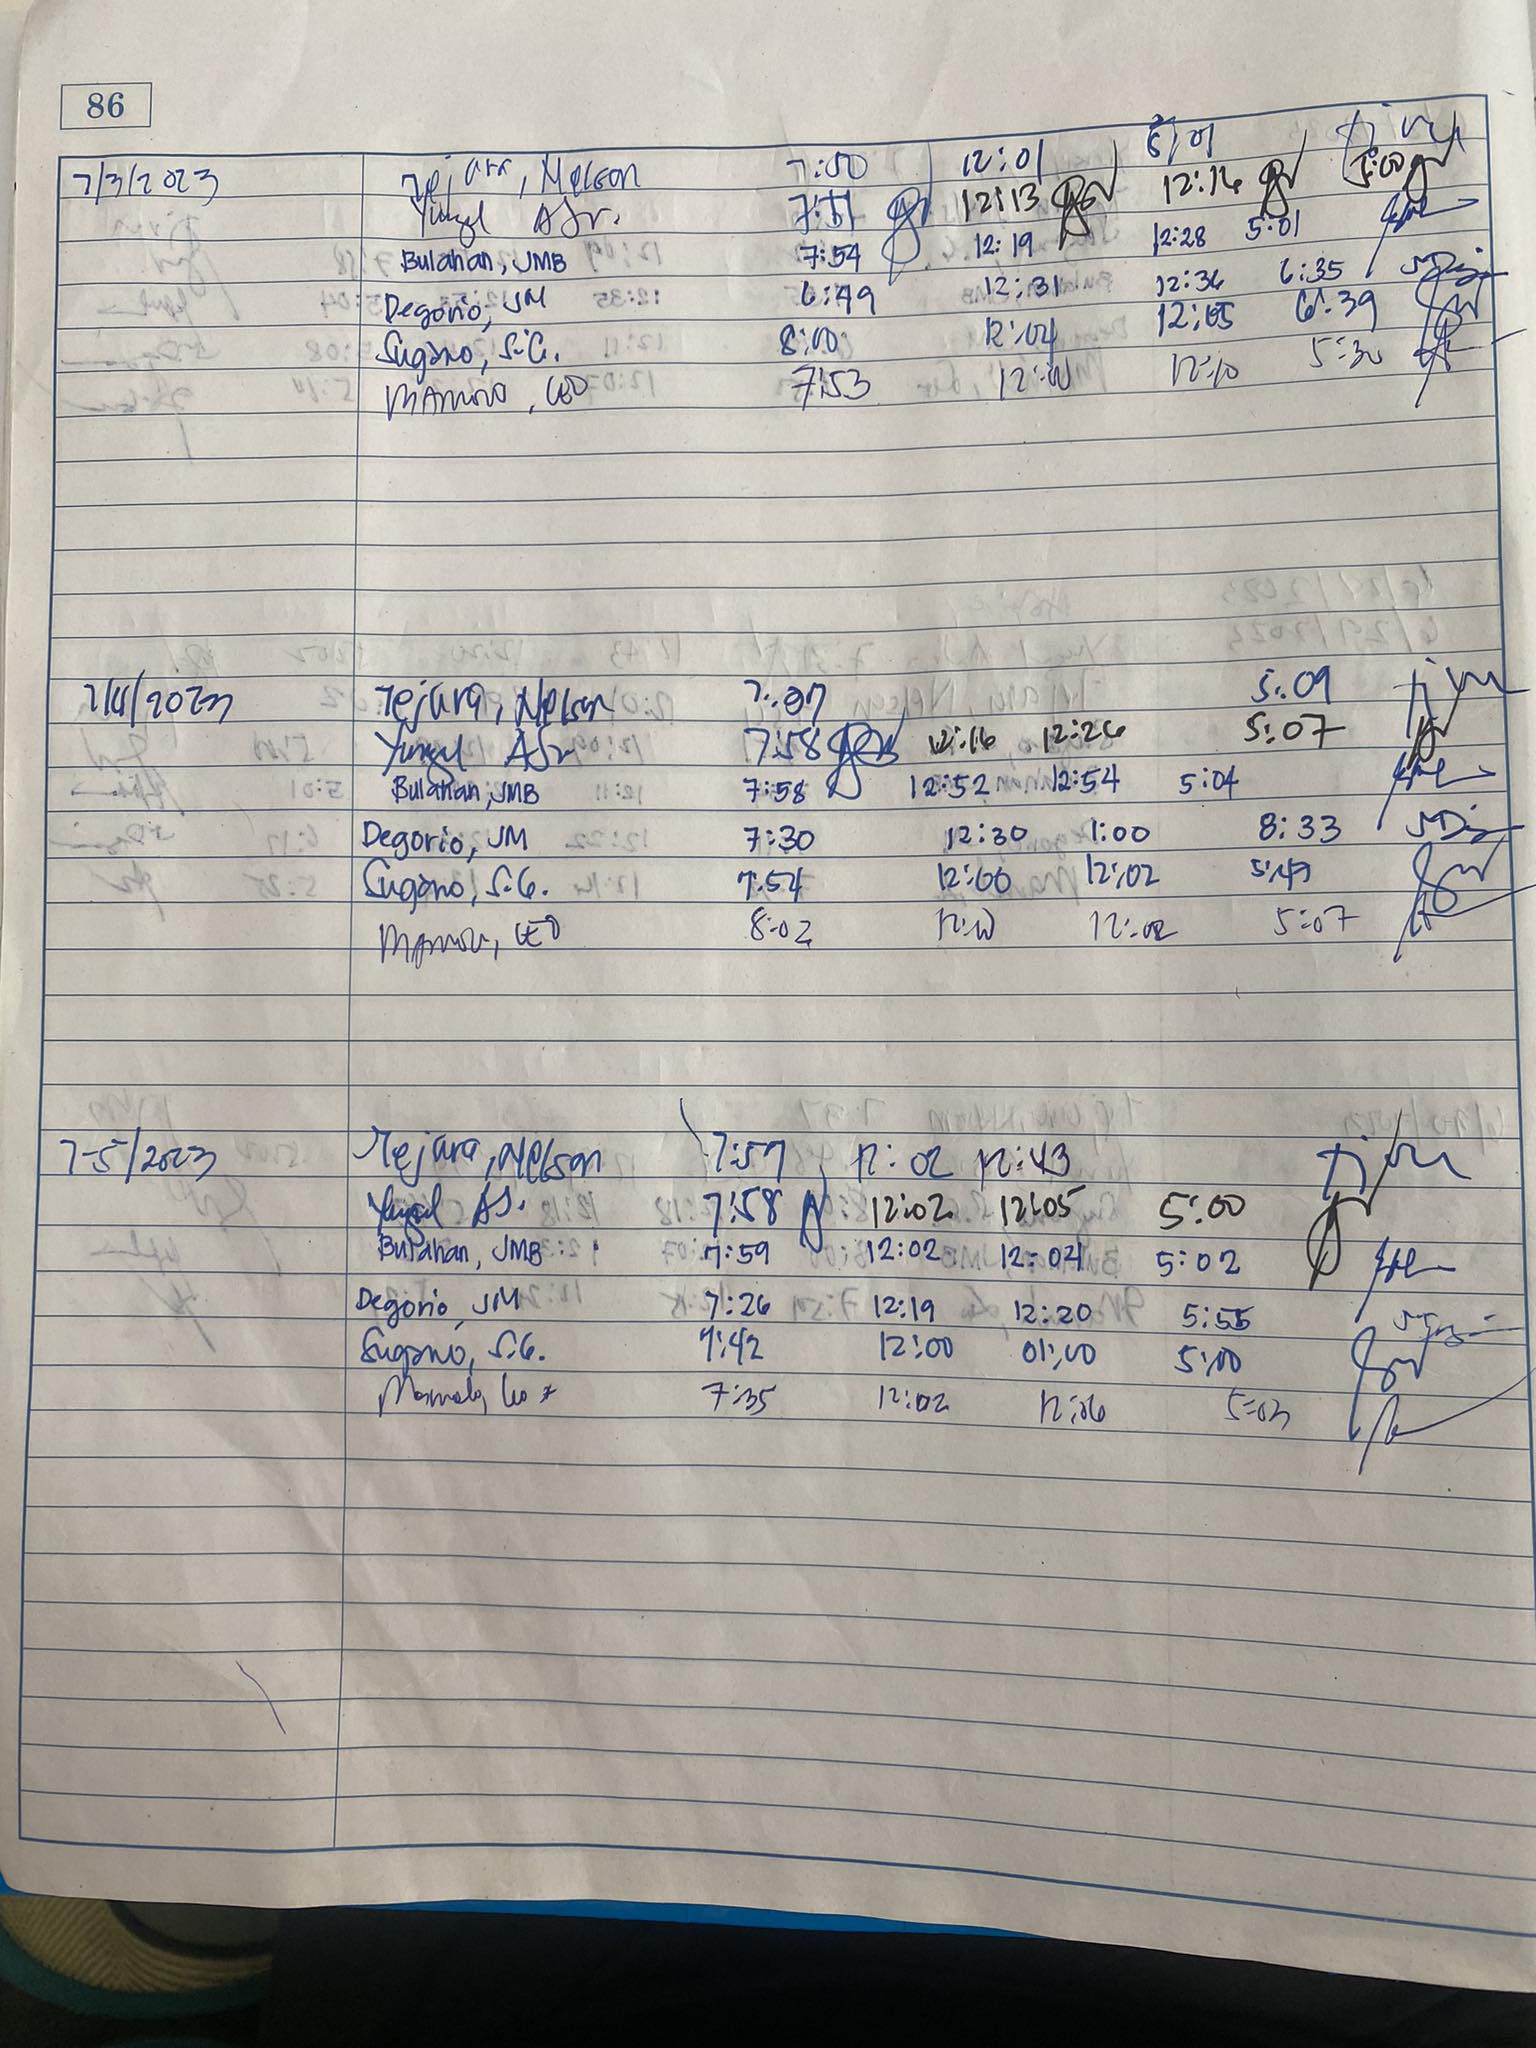 86
7/3/2023 Tejara, Nelson 7:50 12:01 5:01
Yungl ASr. 7:51 12:13 12:16 5:00
Bulahan, JMB 7:54 12:19 12:28 5:01
Degorio, JM 6:49 12:31 12:36 6:35
Sugano, S.G. 8:00 12:04 12:05 6:39
7:53 12:10 5:30
7/4/2023 Tejara, Nelson 5:09
Yungl ASr 7:58 12:16 12:26 5:07
Bulahan, JMB 7:58 12:52 12:54 5:04
Degorio, JM 7:30 12:30 1:00 8:33
Sugano, S.G. 7:54 12:00 12:02 5:47
8:02 12:02 5:07
7-5/2023 Tejara, Nelson 7:57 12:02 12:43
Yungl AS. 7:58 12:02 12:05 5:00
Bulahan, JMB 7:59 12:02 12:04 5:02
Degorio, JM 7:26 12:19 12:20 5:55
Sugano, S.G. 7:42 12:00 01:00 5:00
7:35 12:02 12:06 5:03